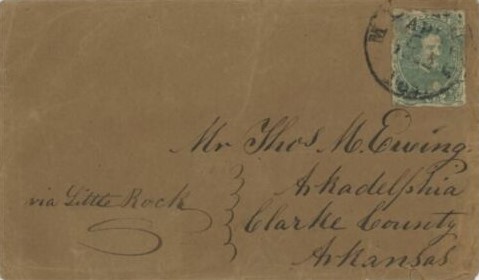 Mr Thos M. Ewing.
Arkadelphia
via Little Rock
Clarke County
Arkansas